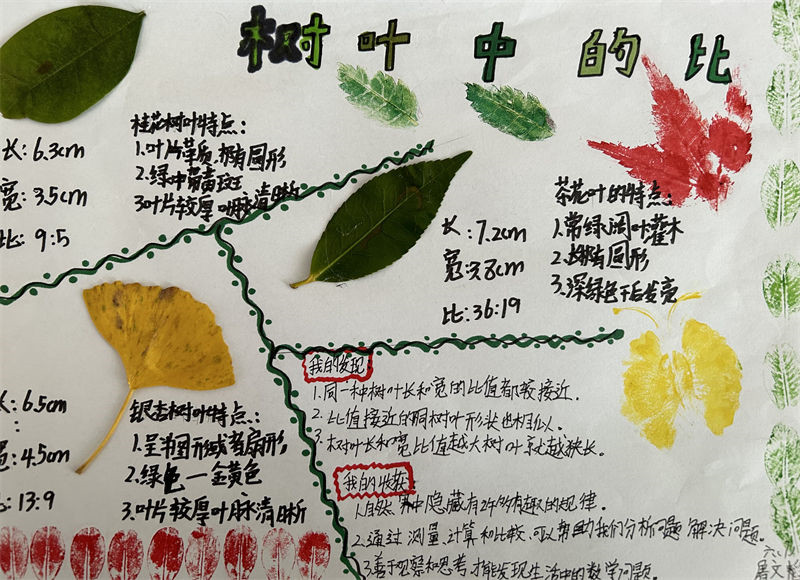 树叶中的比
长：6.3cm
宽：3.5cm
比：9:5
桂花树叶特点：
1.叶片革质,椭圆形
2.绿中带黄斑
3.叶片较厚叶脉清晰
长：7.2cm
宽：3.8cm
比：36:19
茶花叶的特点：
1.常绿阔叶灌木
2.长椭圆形
3.深绿色干后发亮
长：6.5cm
宽：4.5cm
比：13:9
银杏树叶特点：
1.呈半圆形或者扇形,
2.绿色一金黄色
3.叶片较厚叶脉清晰
我的发现
1.同一种树叶长和宽的比值都较接近.
2.比值接近的树叶形状也相似.
3.树叶长和宽比值越大树叶就越狭长.
我的收获:
1.自然界中隐藏有许多有趣的规律.
2.通过测量、计算和比较、可以帮助我们分析问题 解决问题.
3.善于观察和思考,才能发现生活中的数学问题